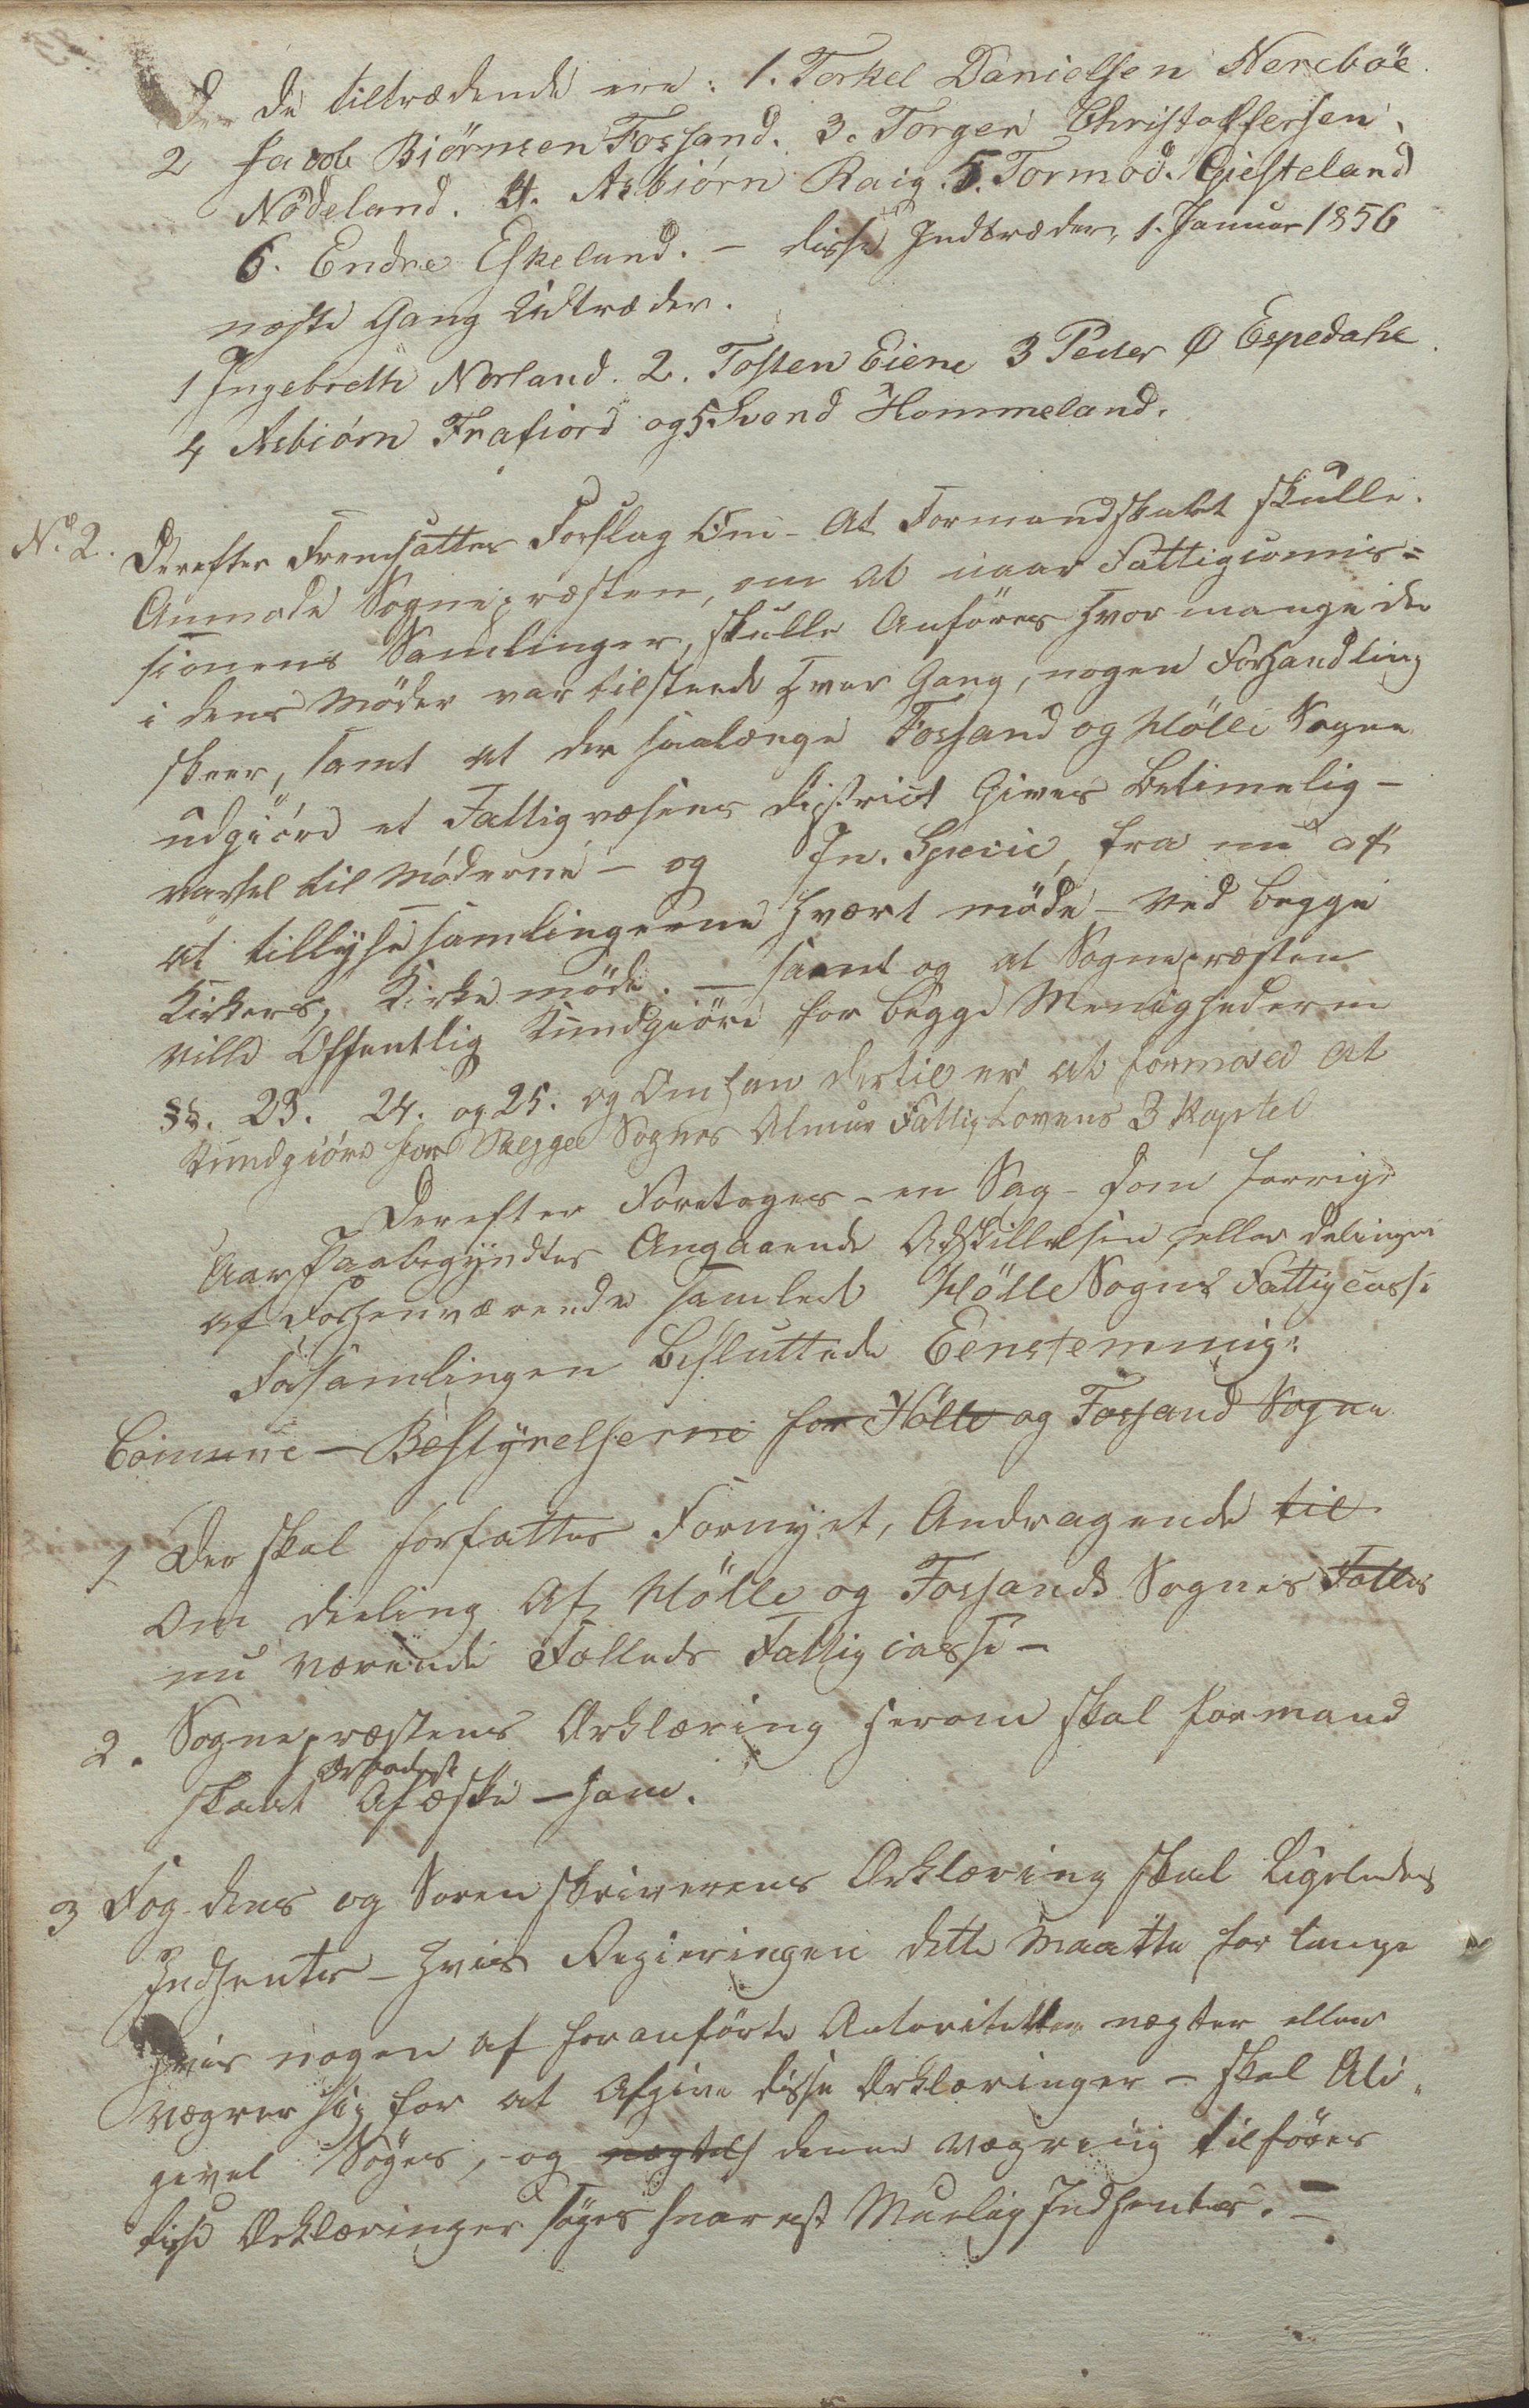 De tiltrædende ere: 1. Torkel Danielsen Nerebøe.
2 Jacob Biörnsen Fossand. 3. Torger Christoffersen
Nödeland. 4. Asbiörn Raig. 5. Tormod. Giesteland
6. Endre Eskeland. — disse Indtræder, 1. Januar 1856
næste Gang Udtræder.
1 Ingebreth Norland. 2. Tosten Eiene 3 Peder Ø Espedahl.
4 Asbiörn Frafiord og 5 Svend Hommeland.
No. 2. Derefter Fremsattes Forslag Om - At Formandskabet skulle
Anmode Sognepræsten, om at naar Fattigcomis=
sionens Samlinger, skulle Anföres hvor mange der
i dens Möder var tilstæde hver Gang, nogen Forhandling
skeer, samt at der saalænge Fossand og Hölle Sogne
udgiörd et Fattigvæsens district Gives Betimelig -
varsel til Möderne - og In. Specie, fra nu af
at tillyse samlingerne hvært möde - ved begge
Kirkers, Kirke möde. — samt og at Sognepræsten
ville Offentlig Kundgiöre for begge Menighederne
§§. 23. 24. og 25. og Om han dertil er at formaa at
Kundgiöre for Begge Sognes Almue Fattig Lovens 3 Kapitel
Derefter Foretoges - en Sag - som forrige
Aar Paabegyndtes Angaaende Adskillelsen eller delingen
af Forhenværende samlede Hölle Sogns Fattigcasse
Forsamlingen Besluttede Eenstemmig:
Comune - Bestyrelserne for Hölle og Fossand Sogne
1 Der skal forfattes Fornyet, Andragende til
Om deeling Af Hölle og Fossands Sognes Fælles
nu værende Fælleds Fattig casse -
2. Sognepræstens Erklæring herom skal formand
skabet Afæske - ham.
3 Fogdens og Sorenskriverens Erklæring skal Ligeledes
Indhentes - hvis Regieringen dette maatte forlange
Hvis nogen af foranförte Autoriteter nægter eller
vægrer sig for at Afgive disse Erklæringer - skal Ali-
gevel Söges, - og nægtels denne vægring tilföres
disse Erklæringer söges snarest Muelig Indhentes. -